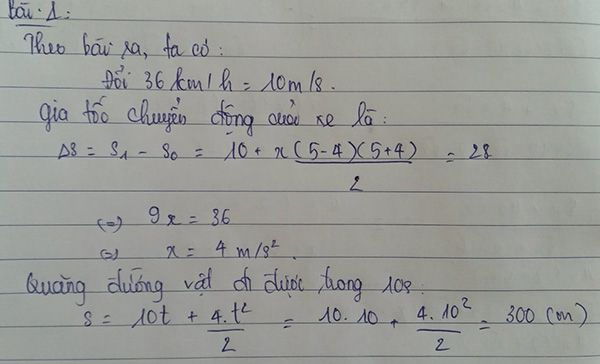 Bài 1:
Theo bài ra, ta có:
Đổi 36 km/h = 10m/s.
Gia tốc chuyển động của xe là:
Δs = s₁ - s₀ = 10 + x(5-4)(5+4)/2 = 28
(=) 9x = 36
(=) x = 4 m/s²
Quãng đường vật đi được trong 10s
s = 10t + 4.t²/2 = 10.10 + 4.10²/2 = 300 (m)